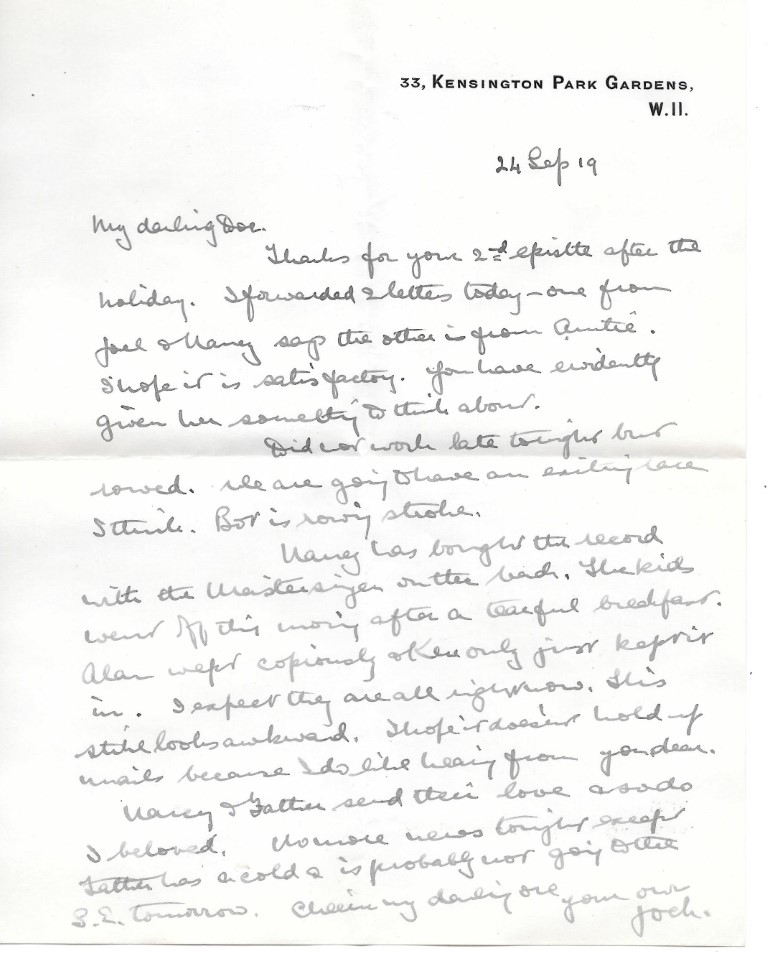 33, KENSINGTON PARK GARDENS,
W.11.
24 Sep 19
My darling Doe.
Thanks for your 2nd epistle after the
holiday. I forwarded 2 letters today – one from
Joel & Nancy says the other is from Auntie.
I hope it is satisfactory. You have evidently
given her something to think about.
Did not work late tonight but
rowed. We are going to have an exciting race
I think. Bot is rowing stroke.
Nancy has bought the record
with the Mastersinger on the back. The kids
went off this morning after a tearful breakfast.
Alan wept copiously & Ken only just kept it
in. I expect they are all right now. This
strike looks awkward. I hope it doesn't hold up
mails because I do like hearing from you dear.
Nancy & Father send their love & so do
I beloved. No more news tonight except
Father has a cold & is probably not going to the
S.E. tomorrow. Cheerio my darling one your own
Jock.